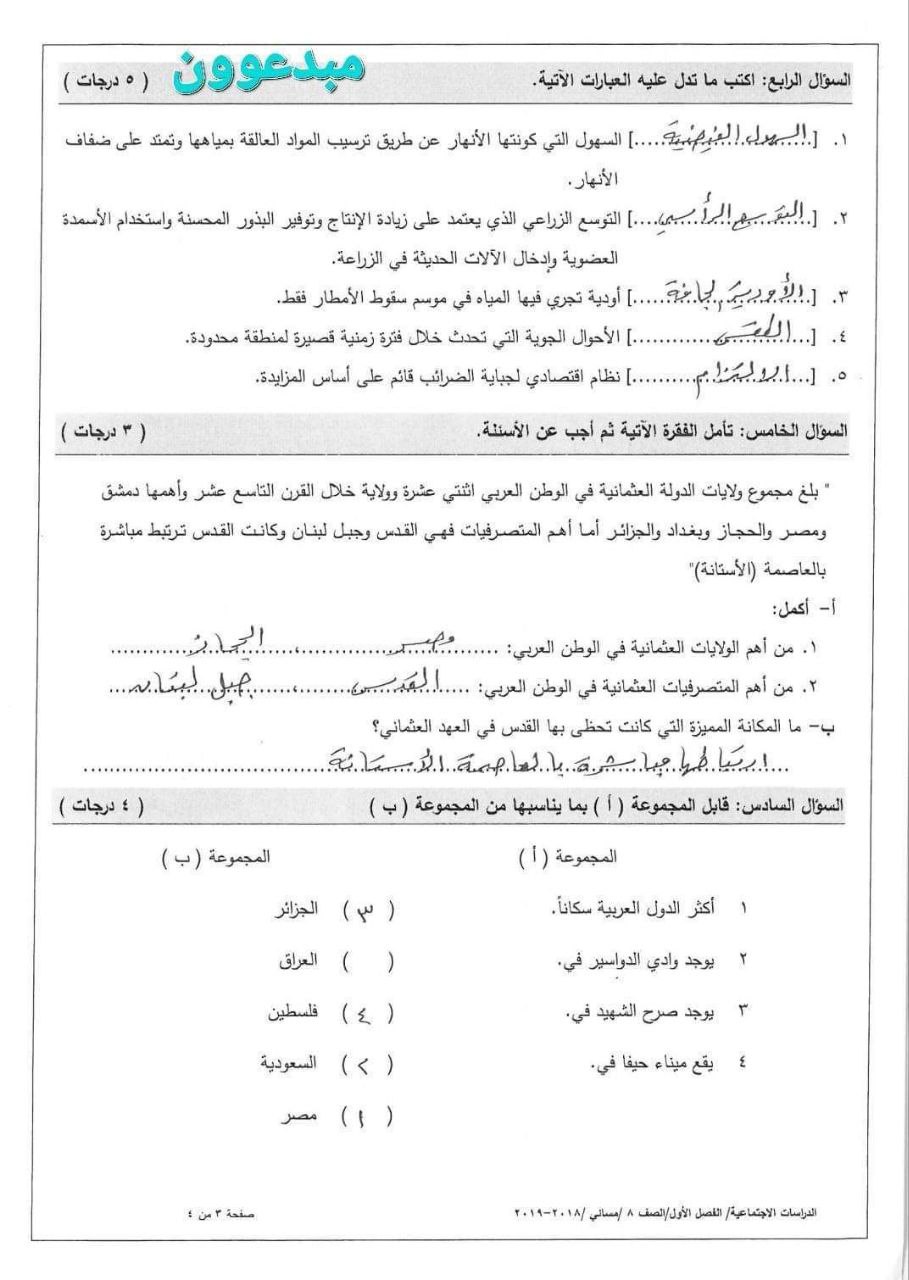 مبدعوون
السؤال الرابع: اكتب ما تدل عليه العبارات الآتية. ( ٥ درجات )
١. [...السهول الفيضية...] السهول التي كونتها الأنهار عن طريق ترسيب المواد العالقة بمياهها وتمتد على ضفاف
الأنهار.
٢. [...التوسع الرأسي...] التوسع الزراعي الذي يعتمد على زيادة الإنتاج وتوفير البذور المحسنة واستخدام الأسمدة
العضوية وإدخال الآلات الحديثة في الزراعة.
٣. [...الأودية الجافة...] أودية تجري فيها المياه في موسم سقوط الأمطار فقط.
٤. [...الطقس...] الأحوال الجوية التي تحدث خلال فترة زمنية قصيرة لمنطقة محدودة.
٥. [...الالتزام...] نظام اقتصادي لجباية الضرائب قائم على أساس المزايدة.
السؤال الخامس: تأمل الفقرة الآتية ثم أجب عن الأسئلة. ( ٣ درجات )
" بلغ مجموع ولايات الدولة العثمانية في الوطن العربي اثنتي عشرة وولاية خلال القرن التاسع عشر وأهمها دمشق
ومصر والحجاز وبغداد والجزائر أما أهم المتصرفيات فهي القدس وجبل لبنان وكانت القدس ترتبط مباشرة
بالعاصمة (الأستانة)"
أ- أكمل:
١. من أهم الولايات العثمانية في الوطن العربي: ...مصر...، ...الحجاز...
٢. من أهم المتصرفيات العثمانية في الوطن العربي: ...القدس...، ...جبل لبنان...
ب- ما المكانة المميزة التي كانت تحظى بها القدس في العهد العثماني؟
...ارتباطها مباشرة بالعاصمة الأستانة...
السؤال السادس: قابل المجموعة ( أ ) بما يناسبها من المجموعة ( ب ) ( ٤ درجات )
المجموعة ( أ ) المجموعة ( ب )
١ أكثر الدول العربية سكاناً. ( ٣ ) الجزائر
٢ يوجد وادي الدواسير في. ( ) العراق
٣ يوجد صرح الشهيد في. ( ٤ ) فلسطين
٤ يقع ميناء حيفا في. ( ٢ ) السعودية
( ١ ) مصر
الدراسات الاجتماعية/ الفصل الأول/الصف ٨ /مسائي /٢٠١٨-٢٠١٩ صفحة ٣ من ٤